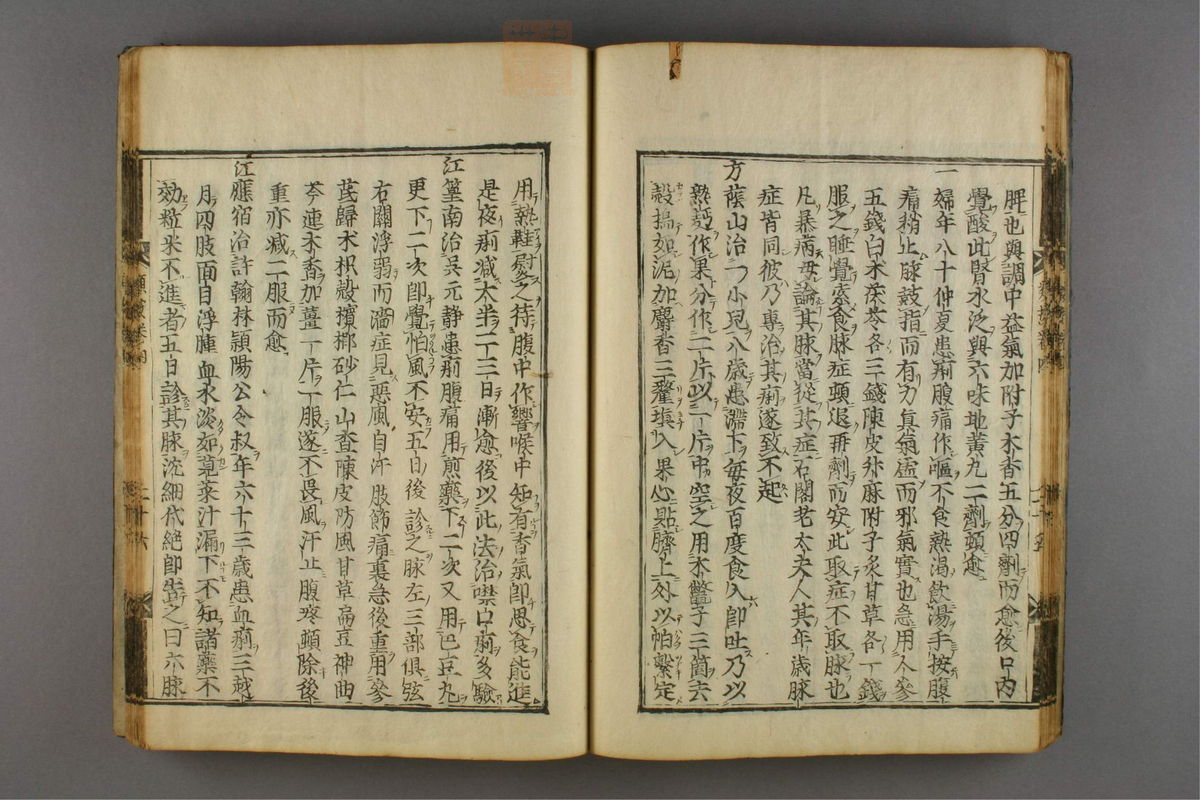 脾也與調中益氣加附子木香五分四劑而愈後口内
覺酸此腎水泛與六味地黄丸二劑頓愈
一婦年八十仲夏患痢腹痛作嘔不食熱渴飲湯手按腹
痛稍止脉鼓指而有力真氣虚而邪氣實也急用人參
五錢白术茯苓各三錢陳皮升麻附子炙甘草各一錢
服之睡覺索食脉症頓退再劑而安此取症不取脉也
凡暴病毋論其脉當從其症石閣老太夫人其年歳脉
症皆同彼乃專治其痢遂致不起
方蔭山治一小兒八歳患滯下毎夜百度食入即吐乃以
熟麪作果分作二片以一片中空之用木鼈子三箇去
殻搗如泥加麝香三釐填入果心貼臍上外以帕繫定
用熱鞋熨之待腹中作響喉中知有香氣即思食能進
是夜痢減太半二三日漸愈後以此法治噤口痢多驗
江篁南治吴元静患痢腹痛用煎藥下二次又用巴豆丸
更下二次即覺怕風不安五日後診之脉左三部倶弦
右關浮弱而濇症見惡風自汗肢節痛裏急後重用參
芪歸术枳殻檳榔砂仁山查陳皮防風甘草扁豆神曲
芩連木香加薑一片一服遂不畏風汗止腹疼頓除後
重亦減二服而愈
江應宿治許翰林頴陽公令叔年六十三歳患血痢三越
月四肢面目浮腫血水淡如莧菜汁漏下不知諸藥不
効粒米不進者五日診其脉沈細代絶即告之曰六脉